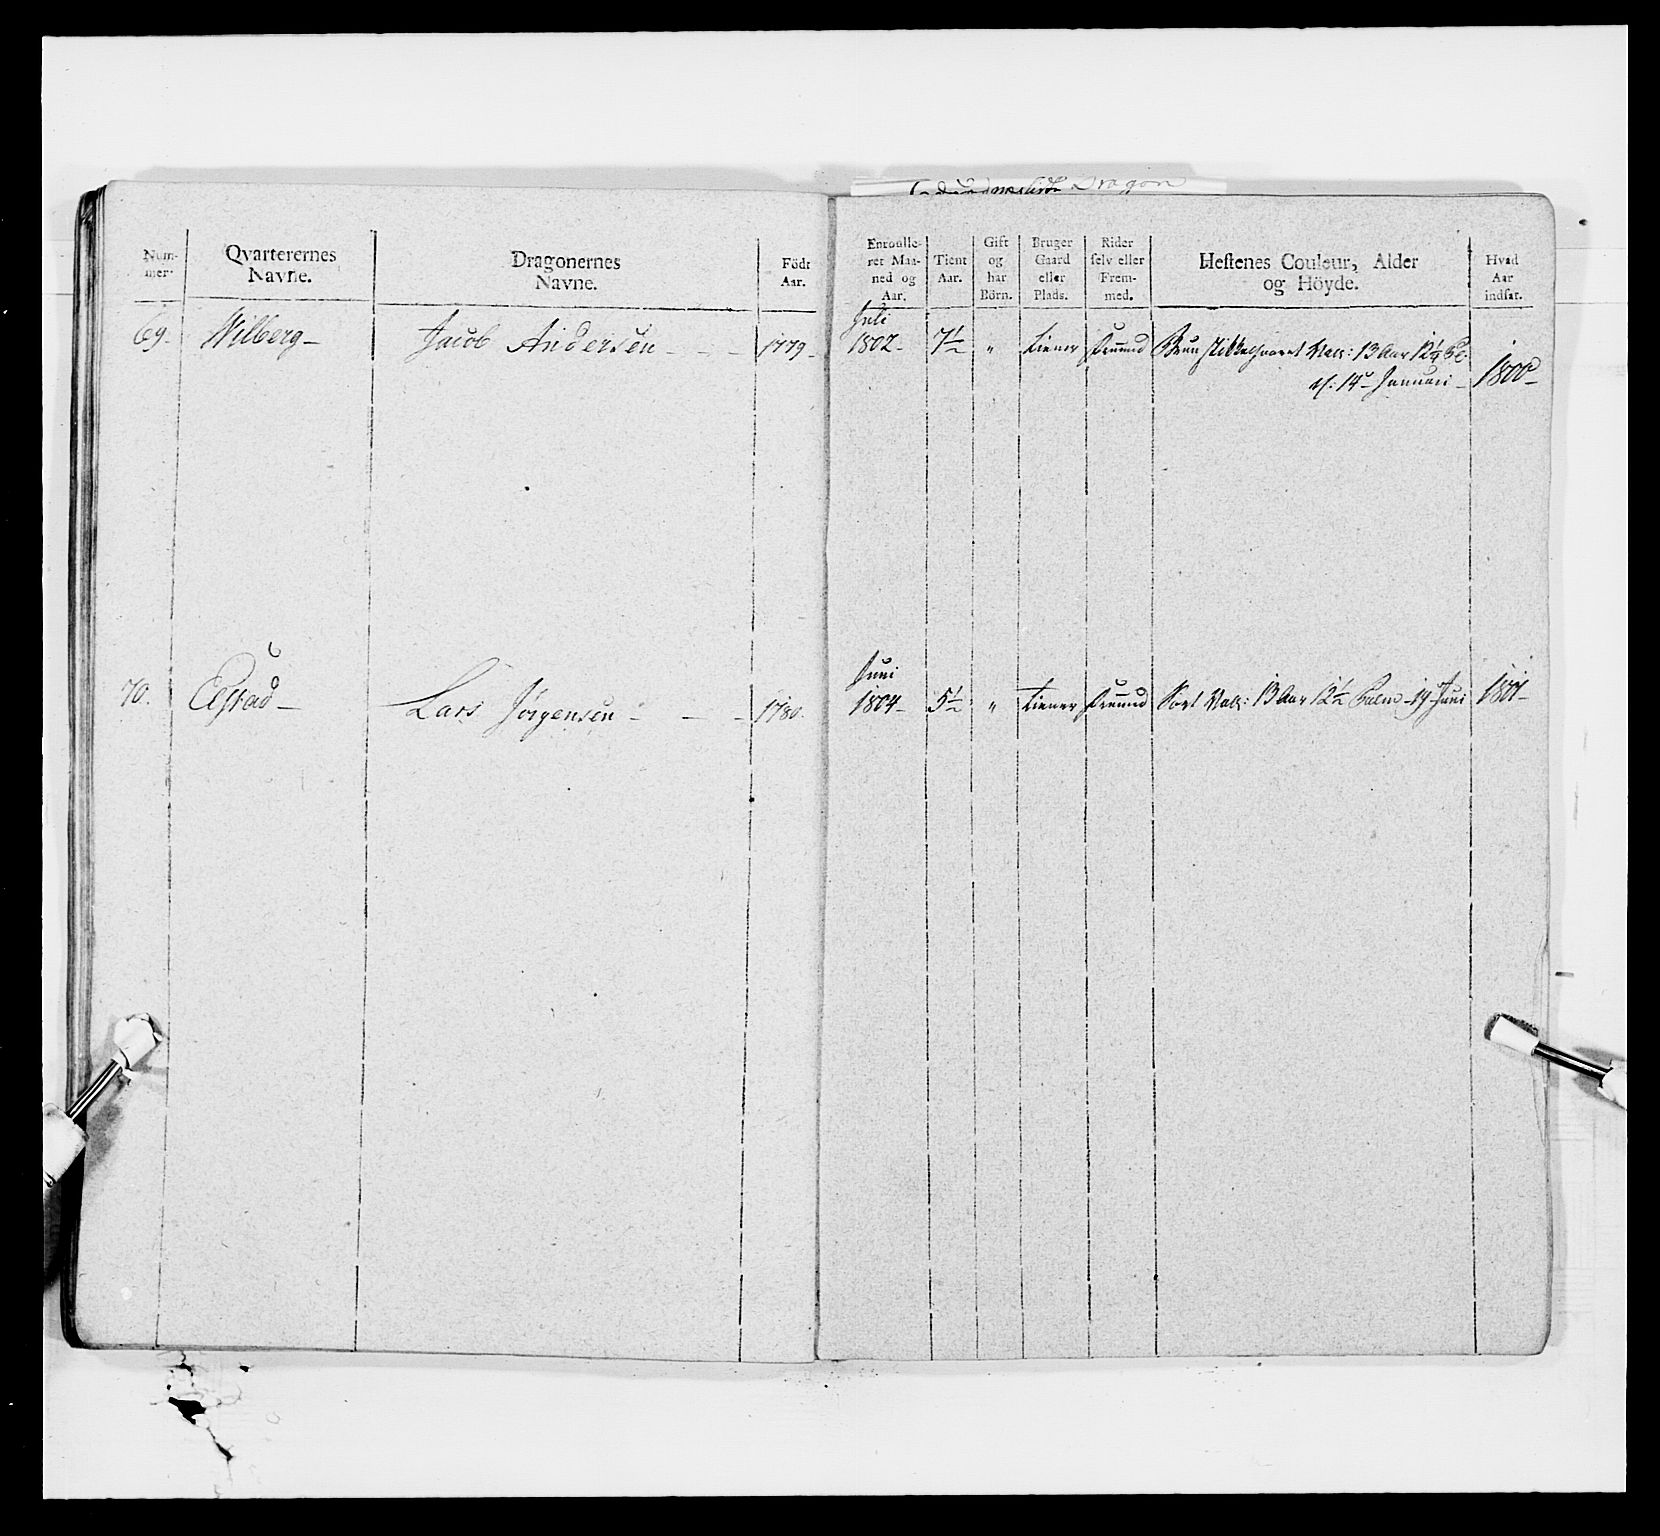 Dragon
Num-
mer.
Qvarterernes
Navne.
Dragonernes
Navne.
Födt
Aar.
Enroulle-
ret Maa-
ned og
Aar.
Tient
Aar.
Gift
og
har
Börn.
Bruger
Gaard
eller
Plads.
Rider
selv eller
Frem-
med.
Hestenes Couleur, Alder
og Höyde.
Hvad
Aar
indsat.
69. Wilberg Jacob Andersen - - - 1779 Juli 1802 7½ " tiener fremd Brun stikkelhaaret Vall: 13 Aar 12¼ P:
d: 14 Januari 1800
70. Lars Jørgensen - - - 1780. Juni 1804 5½ " tiener fremd Sort Vall: 13 Aar 12½ Palm 19 Juni 1801